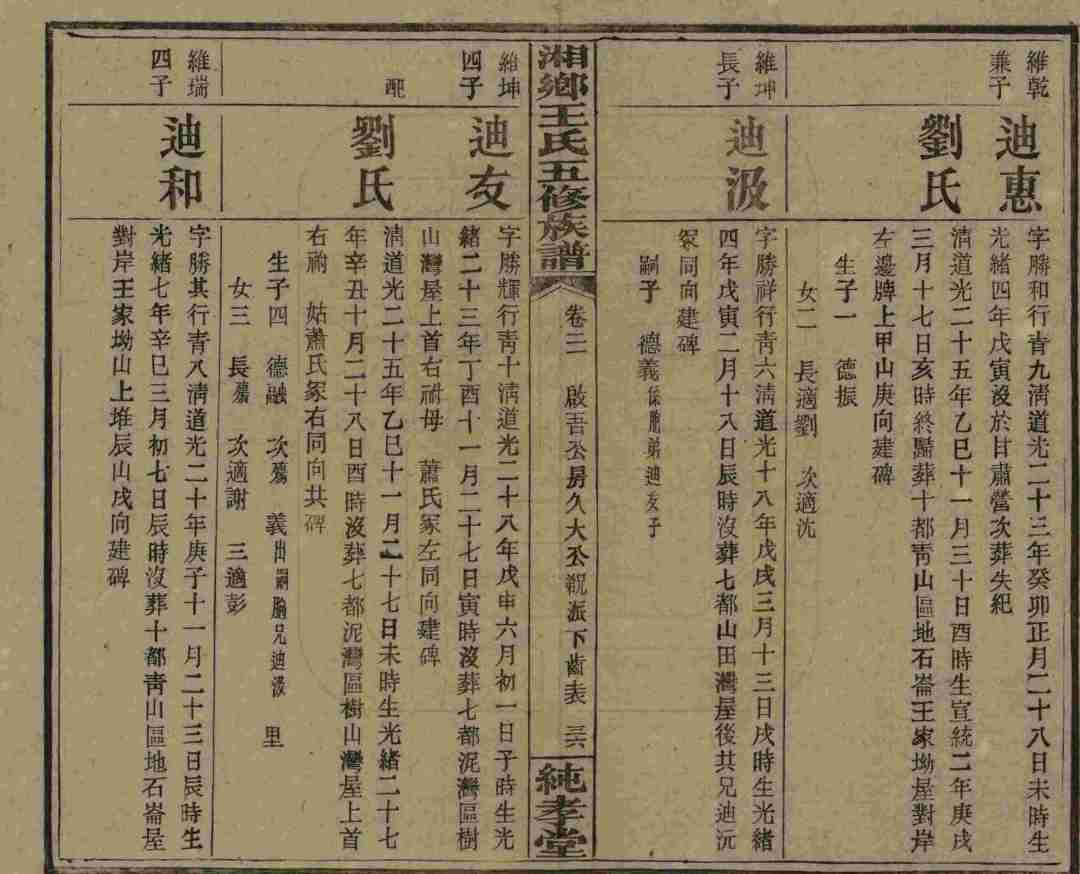 維乾
兼子
迪惠
字勝和行青九清道光二十三年癸卯正月二十八日未時生
光緒四年戊寅沒於甘肅營次葬失紀
劉氏
清道光二十五年乙巳十一月三十日酉時生宣統二年庚戌
三月十七日亥時終歸葬十都靑山區地石崙王家坳屋對岸
左邊牌上甲山庚向建碑
生子一 德振
女二 長適劉 次適沈
維坤
長子
迪汲
字勝祥行靑六淸道光十八年戊戌三月十三日戌時生光緒
四年戊寅二月十八日辰時沒葬七都山田灣屋後共兄迪沅
冢同向建碑
嗣子 德義係胞弟迪友子
湘鄉王氏五修族譜
卷三 啟吾公房久大公派下齒表
純孝堂
維坤
四子
迪友
字勝輝行靑十淸道光二十八年戊申六月初一日子時生光
緒二十三年丁酉十一月二十七日寅時沒葬七都泥灣區樹
山灣屋上首右祔母 蕭氏冢左同向建碑
配
劉氏
淸道光二十五年乙巳十一月二十七日未時生光緒二十七
年辛丑十月二十八日酉時沒葬七都泥灣區樹山灣屋上首
右祔 姑蕭氏冢右同向共碑
生子四 德融 次殤 義出嗣胞兄迪汲 里
女三 長殤 次適謝 三適彭
維瑞
四子
迪和
字勝其行靑八淸道光二十年庚子十一月二十三日辰時生
光緒七年辛巳三月初七日辰時沒葬十都靑山區地石崙屋
對岸王家坳山上堆辰山戌向建碑